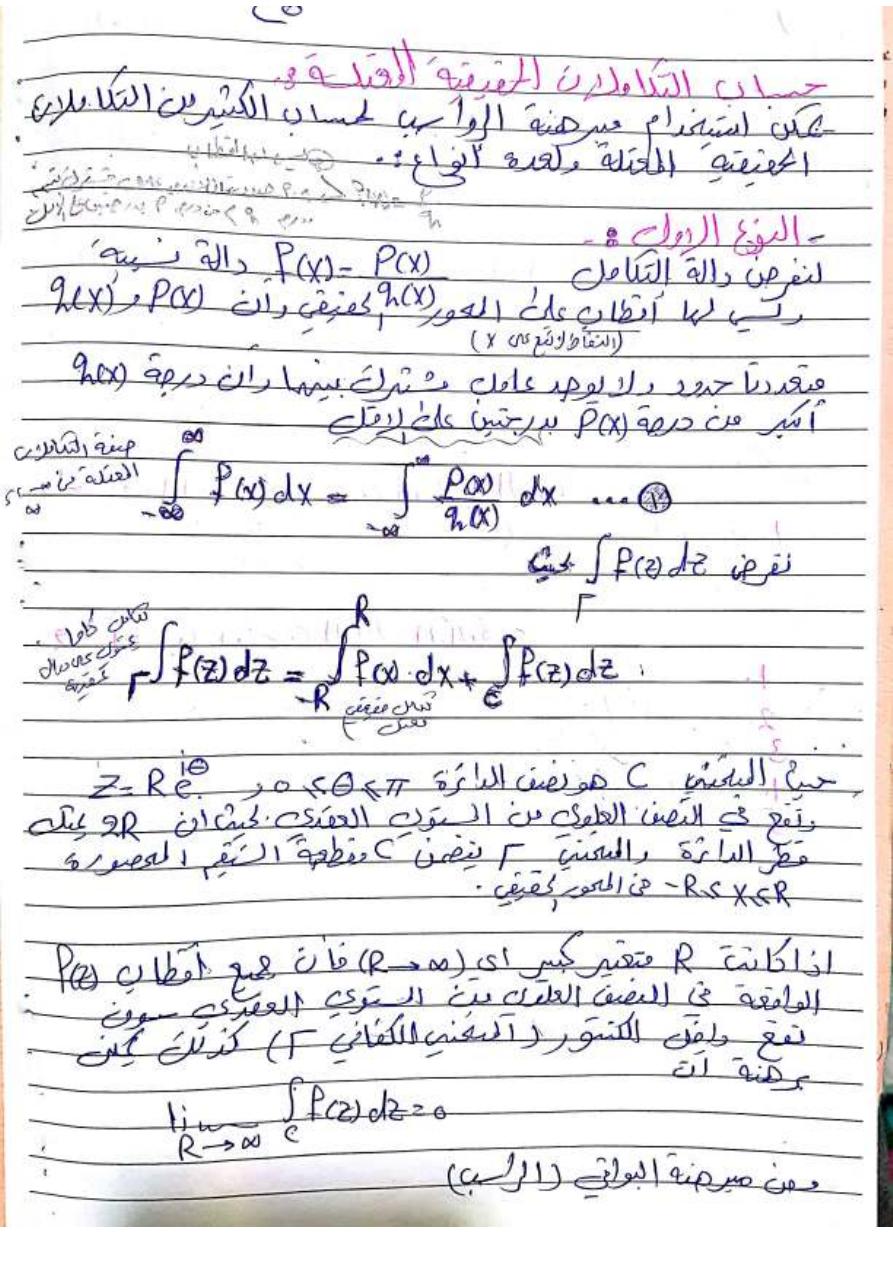 حساب التكاملات الحقيقية المعتلة :.
يمكن استخدام مبرهنة الرواسب لحساب الكثير من التكاملات
الحقيقية المعتلة ولعدة أنواع :.
- النوع الاول :-
لنفرض دالة التكامل f(x) = P(x)/q(x) دالة نسبية
وليس لها أقطاب على المحور الحقيقي وأن P(x) و q(x)
(النقاط لا تقع على x)
متعددتا حدود ولا يوجد عامل مشترك بينهما وان درجة q(x)
أكبر من درجة P(x) بدرجتين على لاقل
صيغة التكاملات
المعتلة من
∫_{-∞}^{∞} f(x) dx = ∫_{-∞}^{∞} P(x)/q(x) dx ...
نفرض ∫_Γ f(z) dz بحيث
Γ∫ f(z) dz = ∫_{-R}^{R} f(x)·dx + ∫_C f(z) dz
تكامل حقيقي
معتل
حيث المنحني C هو نصف الدائرة z = R e^{iθ} , 0 ≤ θ ≤ π
وتقع في النصف العلوي من المستوي العقدي بحيث ان 2R يمثل
قطر الدائرة والمنحني Γ يتضمن C وقطعة المستقيم المحصورة
-R ≤ x ≤ R من المحور الحقيقي .
اذا كانت R متغير كبير اي (R→∞) فأن جميع أقطاب f(z)
الواقعة في النصف العلوي من المستوي العقدي سوف
تقع داخل الكنتور (المنحني الكفافي Γ) كذلك يمكن
برهنة ان
lim_{R→∞} ∫_C f(z) dz = 0
ومن مبرهنة البواقي (الرواسب)